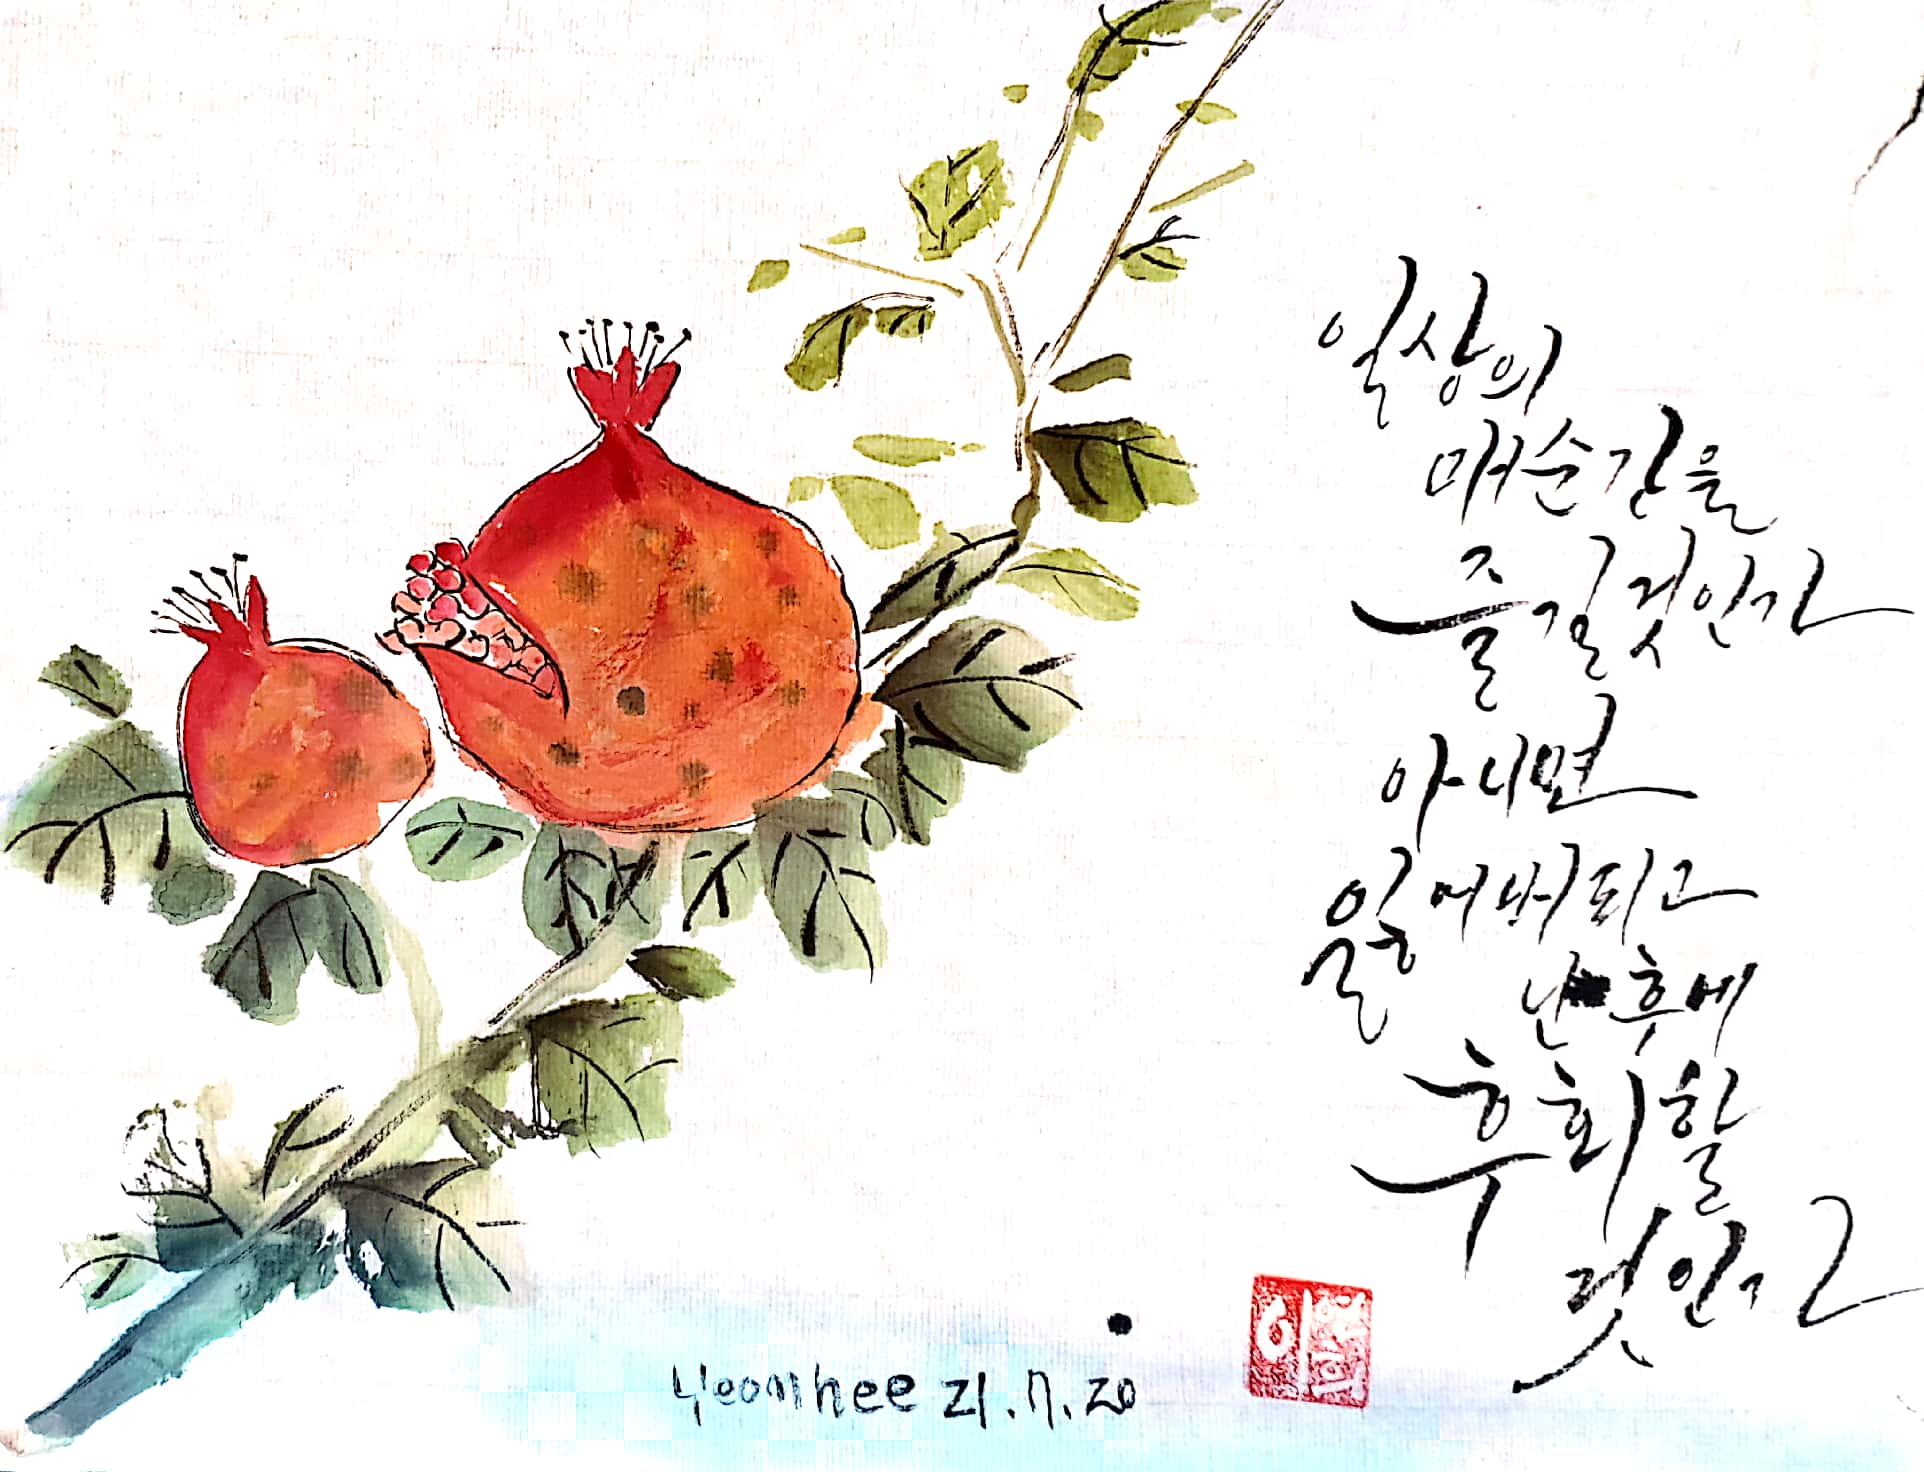 일상의
매순간을
즐길것인가
아니면
잃어버리고
난 후에
후회할
것인가
yeonhee 21.7.20
이연희